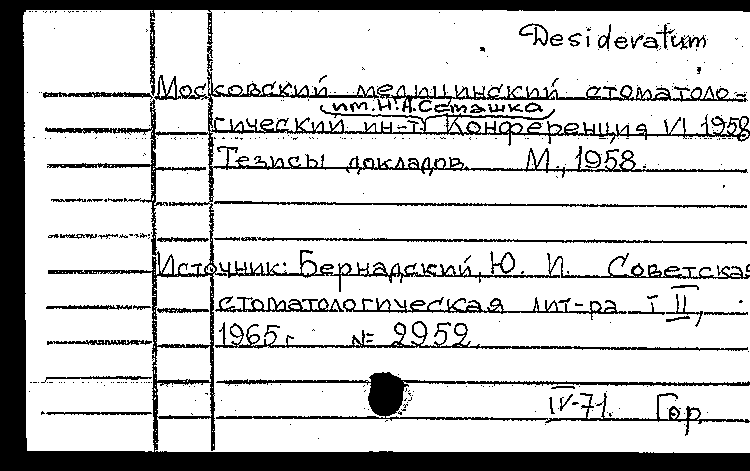 Desideratum
Московский медицинский стоматоло-
им. Н.А. Семашка
гический ин-т Конференция VI 1958
Тезисы докладов. М., 1958.
Источник: Бернадский, Ю. И. Советская
стоматологическая лит-ра т II,
1965 г № 2952.
IV-71. Гор